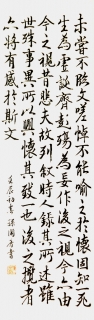 未嘗不臨文嗟悼不能喻之於懷固知死
生為虛誕齊彭殤為妄作後之視今亦由
今之視昔悲夫故列敘時人錄其所述雖
世殊事異所以興懷其致一也後之攬者
亦將有感於斯文
壬辰